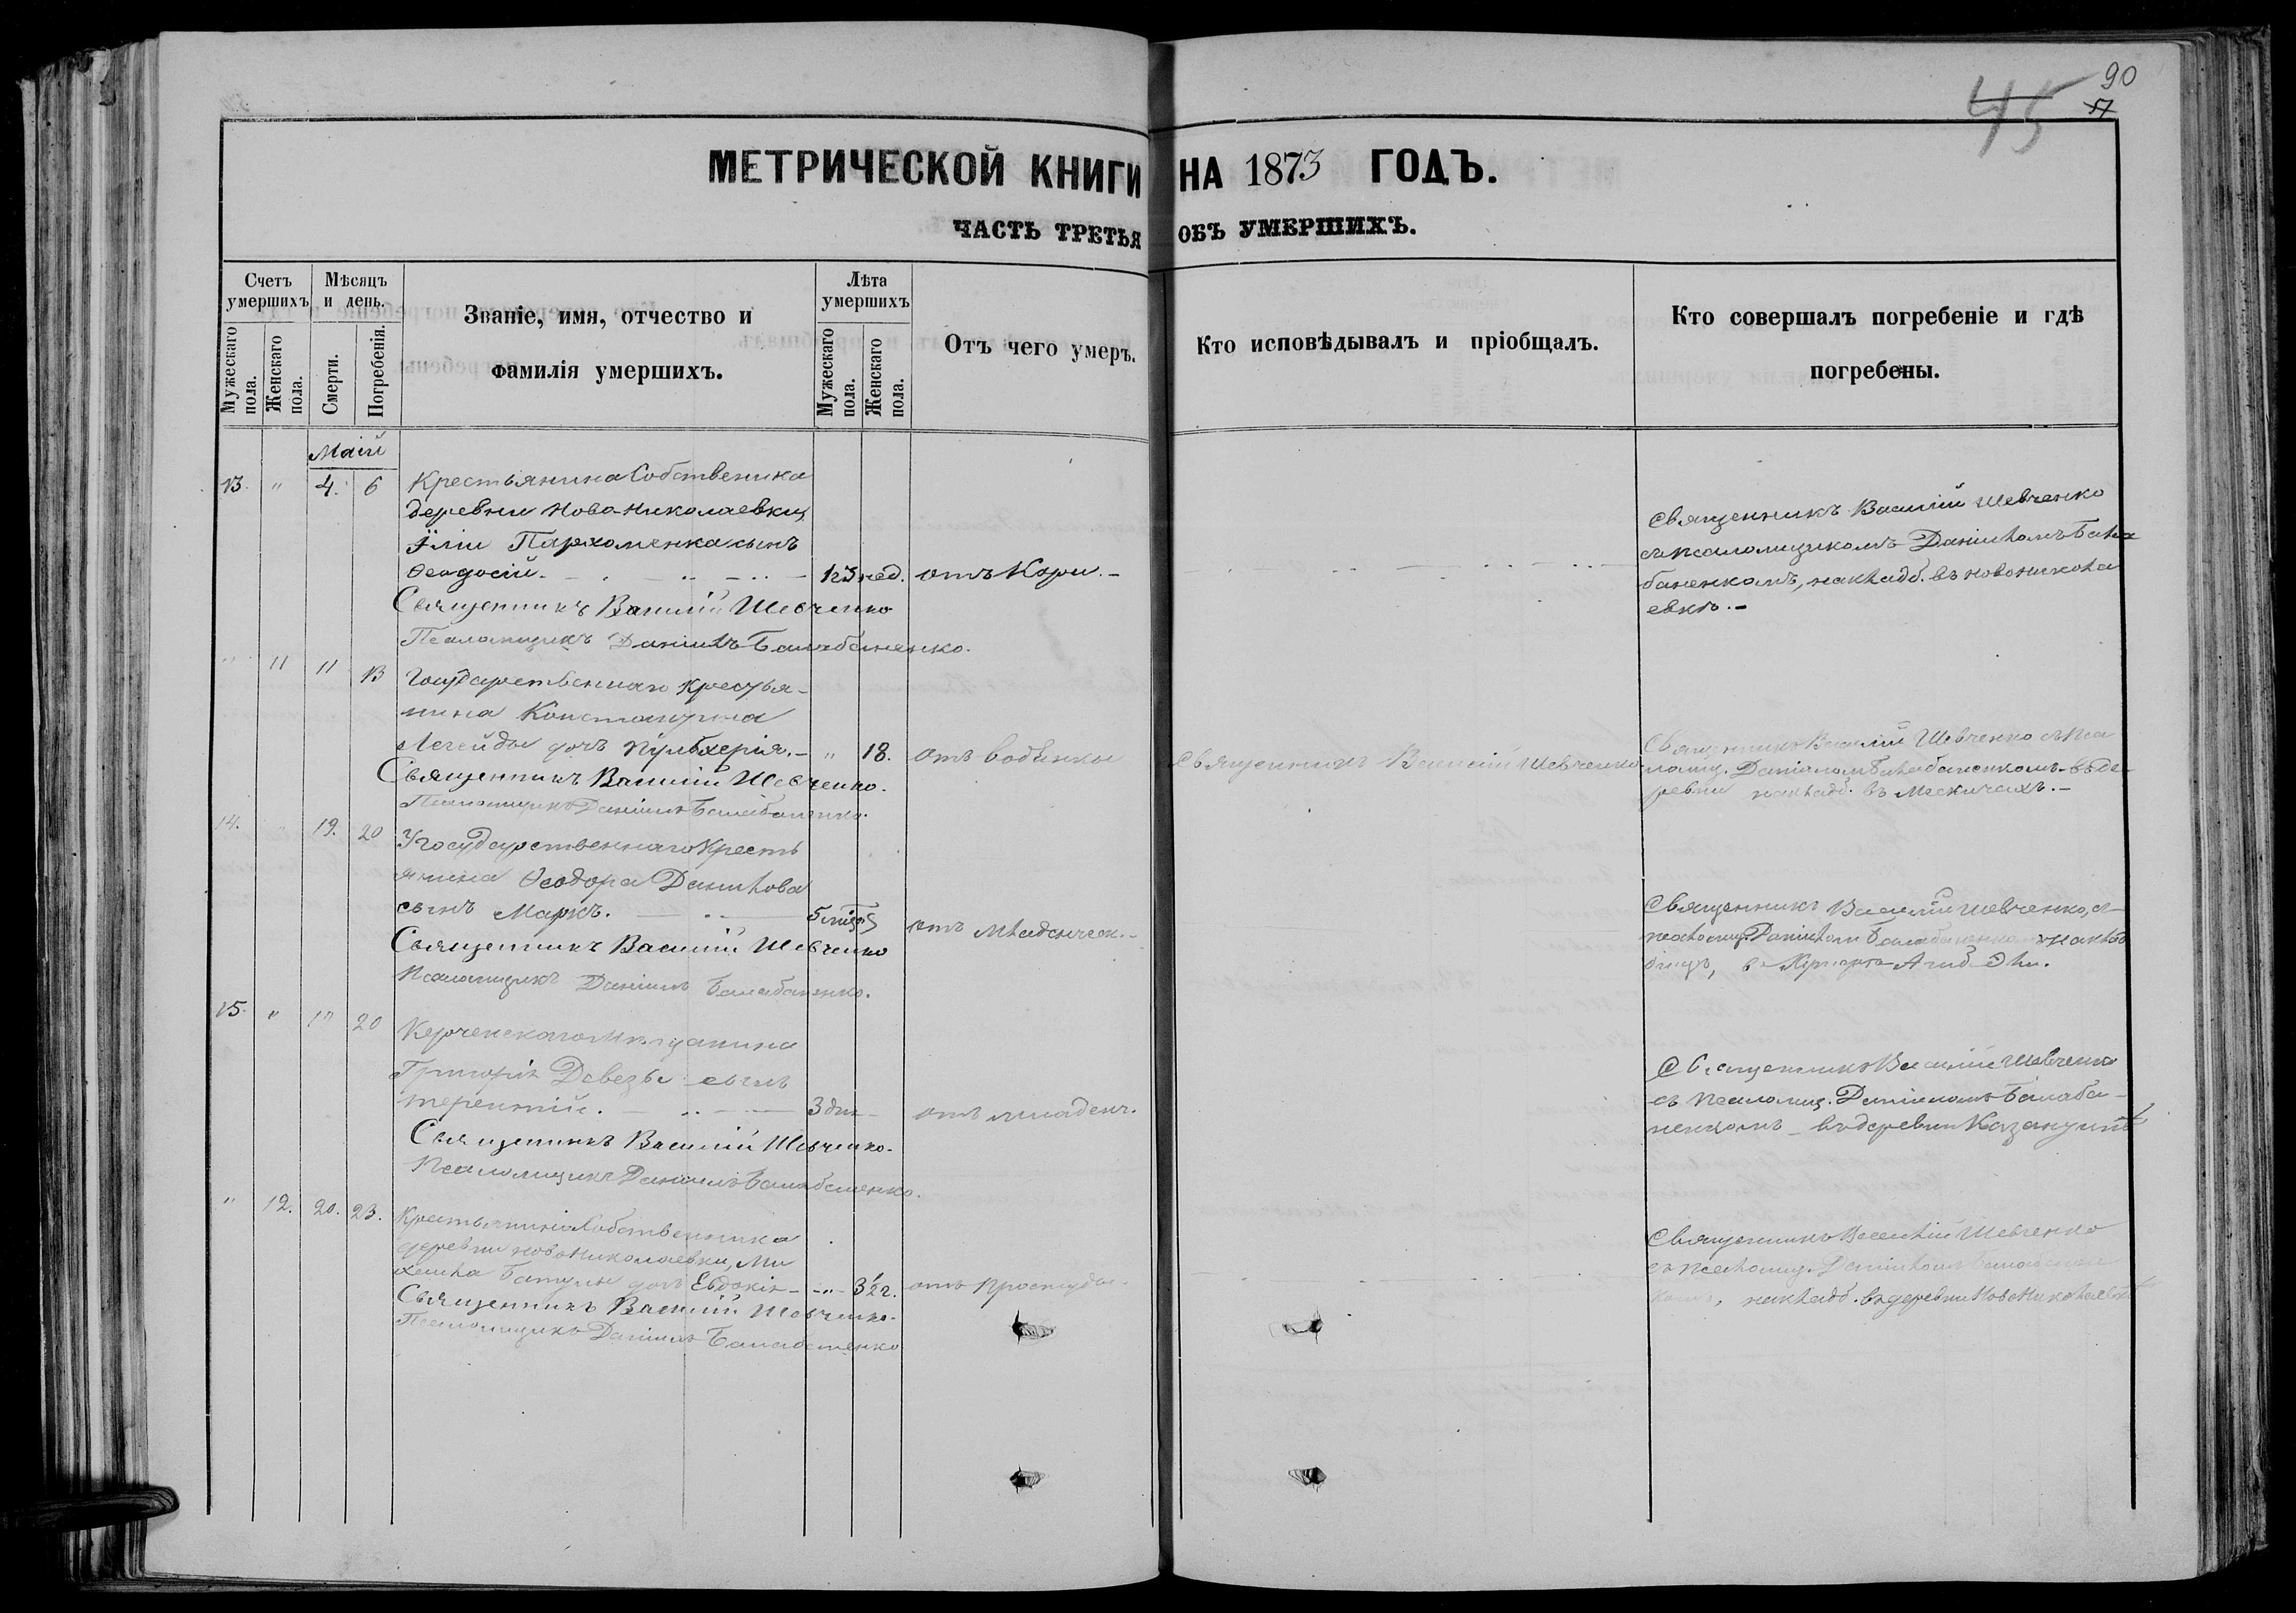 90
45
57
МЕТРИЧЕСКОЙ КНИГИ НА 1873 ГОДЪ.
ЧАСТЬ ТРЕТЬЯ ОБЪ УМЕРШИХЪ.
Счетъ умершихъ
Мужескаго пола.
Женскаго пола.
Мѣсяцъ и день.
Смерти.
Погребенія.
Званіе, имя, отчество и
фамилія умершихъ.
Лѣта умершихъ
Мужескаго пола.
Женскаго пола.
Отъ чего умеръ.
Кто исповѣдывалъ и пріобщалъ.
Кто совершалъ погребеніе и гдѣ
погребены.
Маій
13. " 4. 6 Крестьянина Собственика
деревни Ново-Николаевки,
Іліи Пархоменка сынъ
Ѳеодосій. нед. отъ Кори.
Священникъ Василій Шевченко
Псаломщикъ Даніилъ Балабаненко.
Священникъ Василій Шевченко
съ псаломщикомъ Даніиломъ Бала
баненкомъ, на кладб. въ Новониколa
евкѣ.
" 11 11 13 Государственнаго Крестья-
нина Константина
Легейды дочь Пульхерія. " 18. отъ водянки Священникъ Василій Шевченко
Священникъ Василій Шевченко.
Псаломщикъ Даніилъ Балабаненко.
Священникъ Василій Шевченко съ Пса
ломщ. Даніиломъ Балабаненкомъ въ де-
ревни на кладб. въ
14. 19. 20 Государственнаго Кресть
янина Ѳеодора Данилова
сынъ Маркъ. 5 отъ Младенческ.
Священникъ Василій Шевченко
Псаломщикъ Даніилъ Балабаненко.
Священникъ Василій Шевченко, съ
псаломщ. Даніиломъ на клад
бищѣ, въ
15. " 17 20 Керченскаго Мѣщанина
Григорія сынъ
Терентій. 3 дня отъ младенч.
Священникъ Василій Шевченко.
Псаломщикъ Даніилъ Балабаненко.
Священникъ Василій Шевченко
съ Псаломщ. Даніиломъ Балаба-
ненкомъ въ деревни
" 12. 20. 23. Крестьянина Собственника
деревни Новониколаевки, Ми
хаила дочь Евдокія " 3½ г. отъ Простуды.
Священникъ Василій Шевченко.
Псаломщикъ Даніилъ Балабаненко
Священникъ Василій Шевченко
съ псаломщ. Даніиломъ Балабанен
комъ, на кладб. въ деревни Новониколаевкѣ